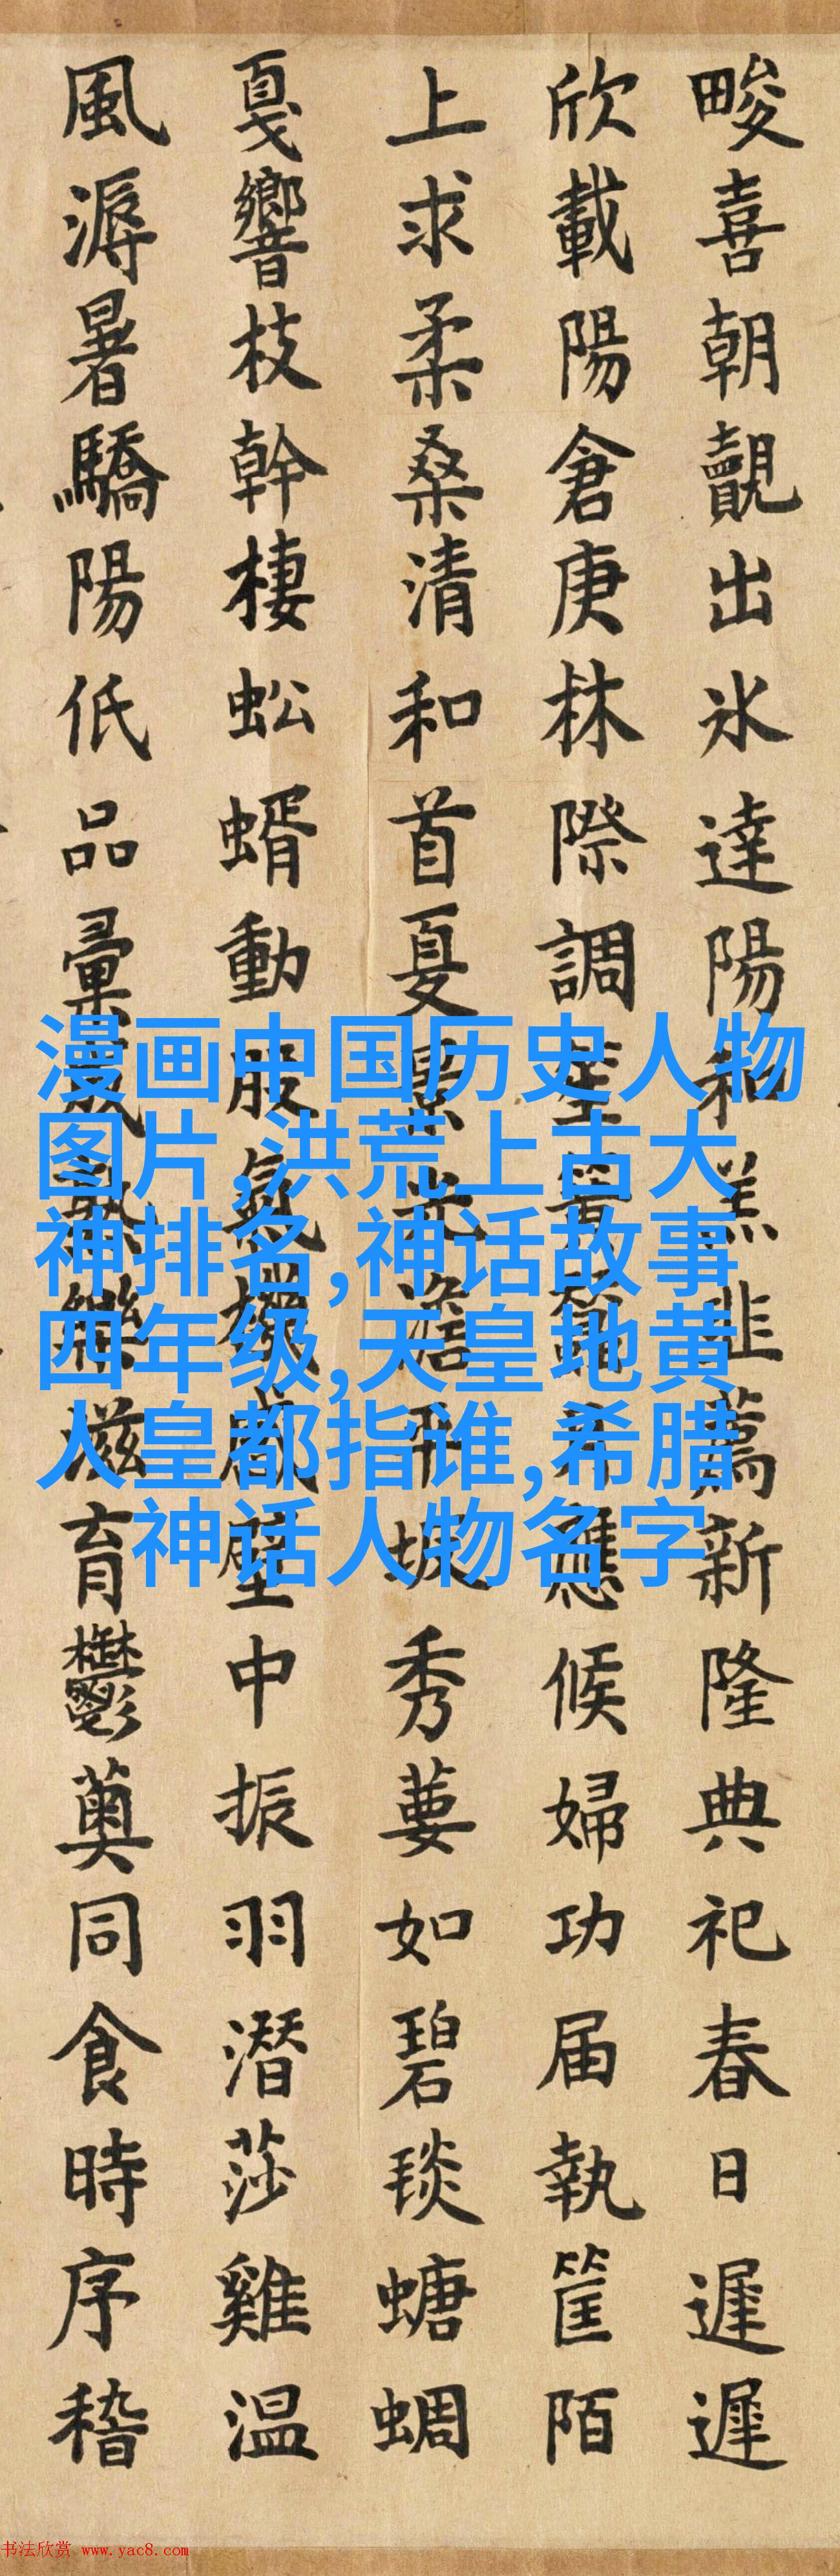 畯喜朝覿出氷達陽和羔韭薦新隆典祀春日遲遲
欣載陽倉庚林際調應候婦功届執筐陌
上求柔桑清和首夏景光秀葽如碧琰螗蜩
戛響枝幹棲蚣蝑動股氣機壁中振羽潛莎雞温
風溽暑驕陽低品彙滋育鬱薁同食時序稽
漫画中国历史人物
图片,洪荒上古大
神排名,神话故事
四年级,天皇地黄
人皇都指谁,希腊
神话人物名字
书法欣赏 www.yac8.com